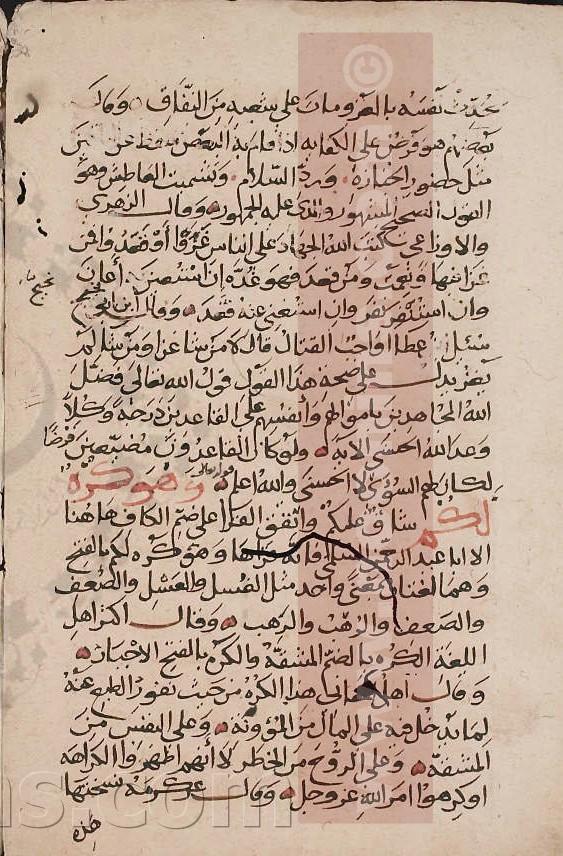 يحدث نفسه بالغزو مات على شعبة من النفاق وقال
بعضهم هو فرض على الكفاية اذا قام به البعض سقط عن الباقين
مثل حضور الجنازة ورد السلام وتشميت العاطس وهو
القول الصحيح المشهور والذي عليه الجمهور وقال الزهري
والاوزاعي كتب الله الجهاد على الناس غزوا أو قعدوا فمن
غزا فبها ونعمت ومن قعد فهو عدة ان استعين به أعان
وان استنفر نفر وان استغني عنه قعد وقال ابن ابي نجيح
سئل عطا اواجب القتال قال لا من شا غزا ومن شا لم
يغز يدل على صحة هذا القول قول الله تعالى فضل
الله المجاهدين باموالهم وأنفسهم على القاعدين درجة وكلا
وعد الله الحسنى الاية ولو كان القاعدون مضيعين فرضا
لكان لهم السؤى لا الحسنى والله اعلم قوله تعالى وهو كره
لكم شاق عليكم واتفق القرا على ضم الكاف هاهنا
الا ابا عبد الرحمن السلمي فانه قراها وهو كره لكم بالفتح
وهما لغتان بمعنى واحد مثل الغسل والغسل والضعف
والضعف والرهب والرهب وقال اكثر اهل
اللغة الكره بالضم المشقة والكره بالفتح الاجبار
وقال أهل المعاني هذا الكره من حيث نفور الطبع عنه
لما يدخل فيه على المال من المؤونة وعلى النفس من
المشقة وعلى الروح من الخطر لا أنهم اظهروا الكراهة
او كرهوا امر الله عز وجل وقال عكرمة نسختها
هذه